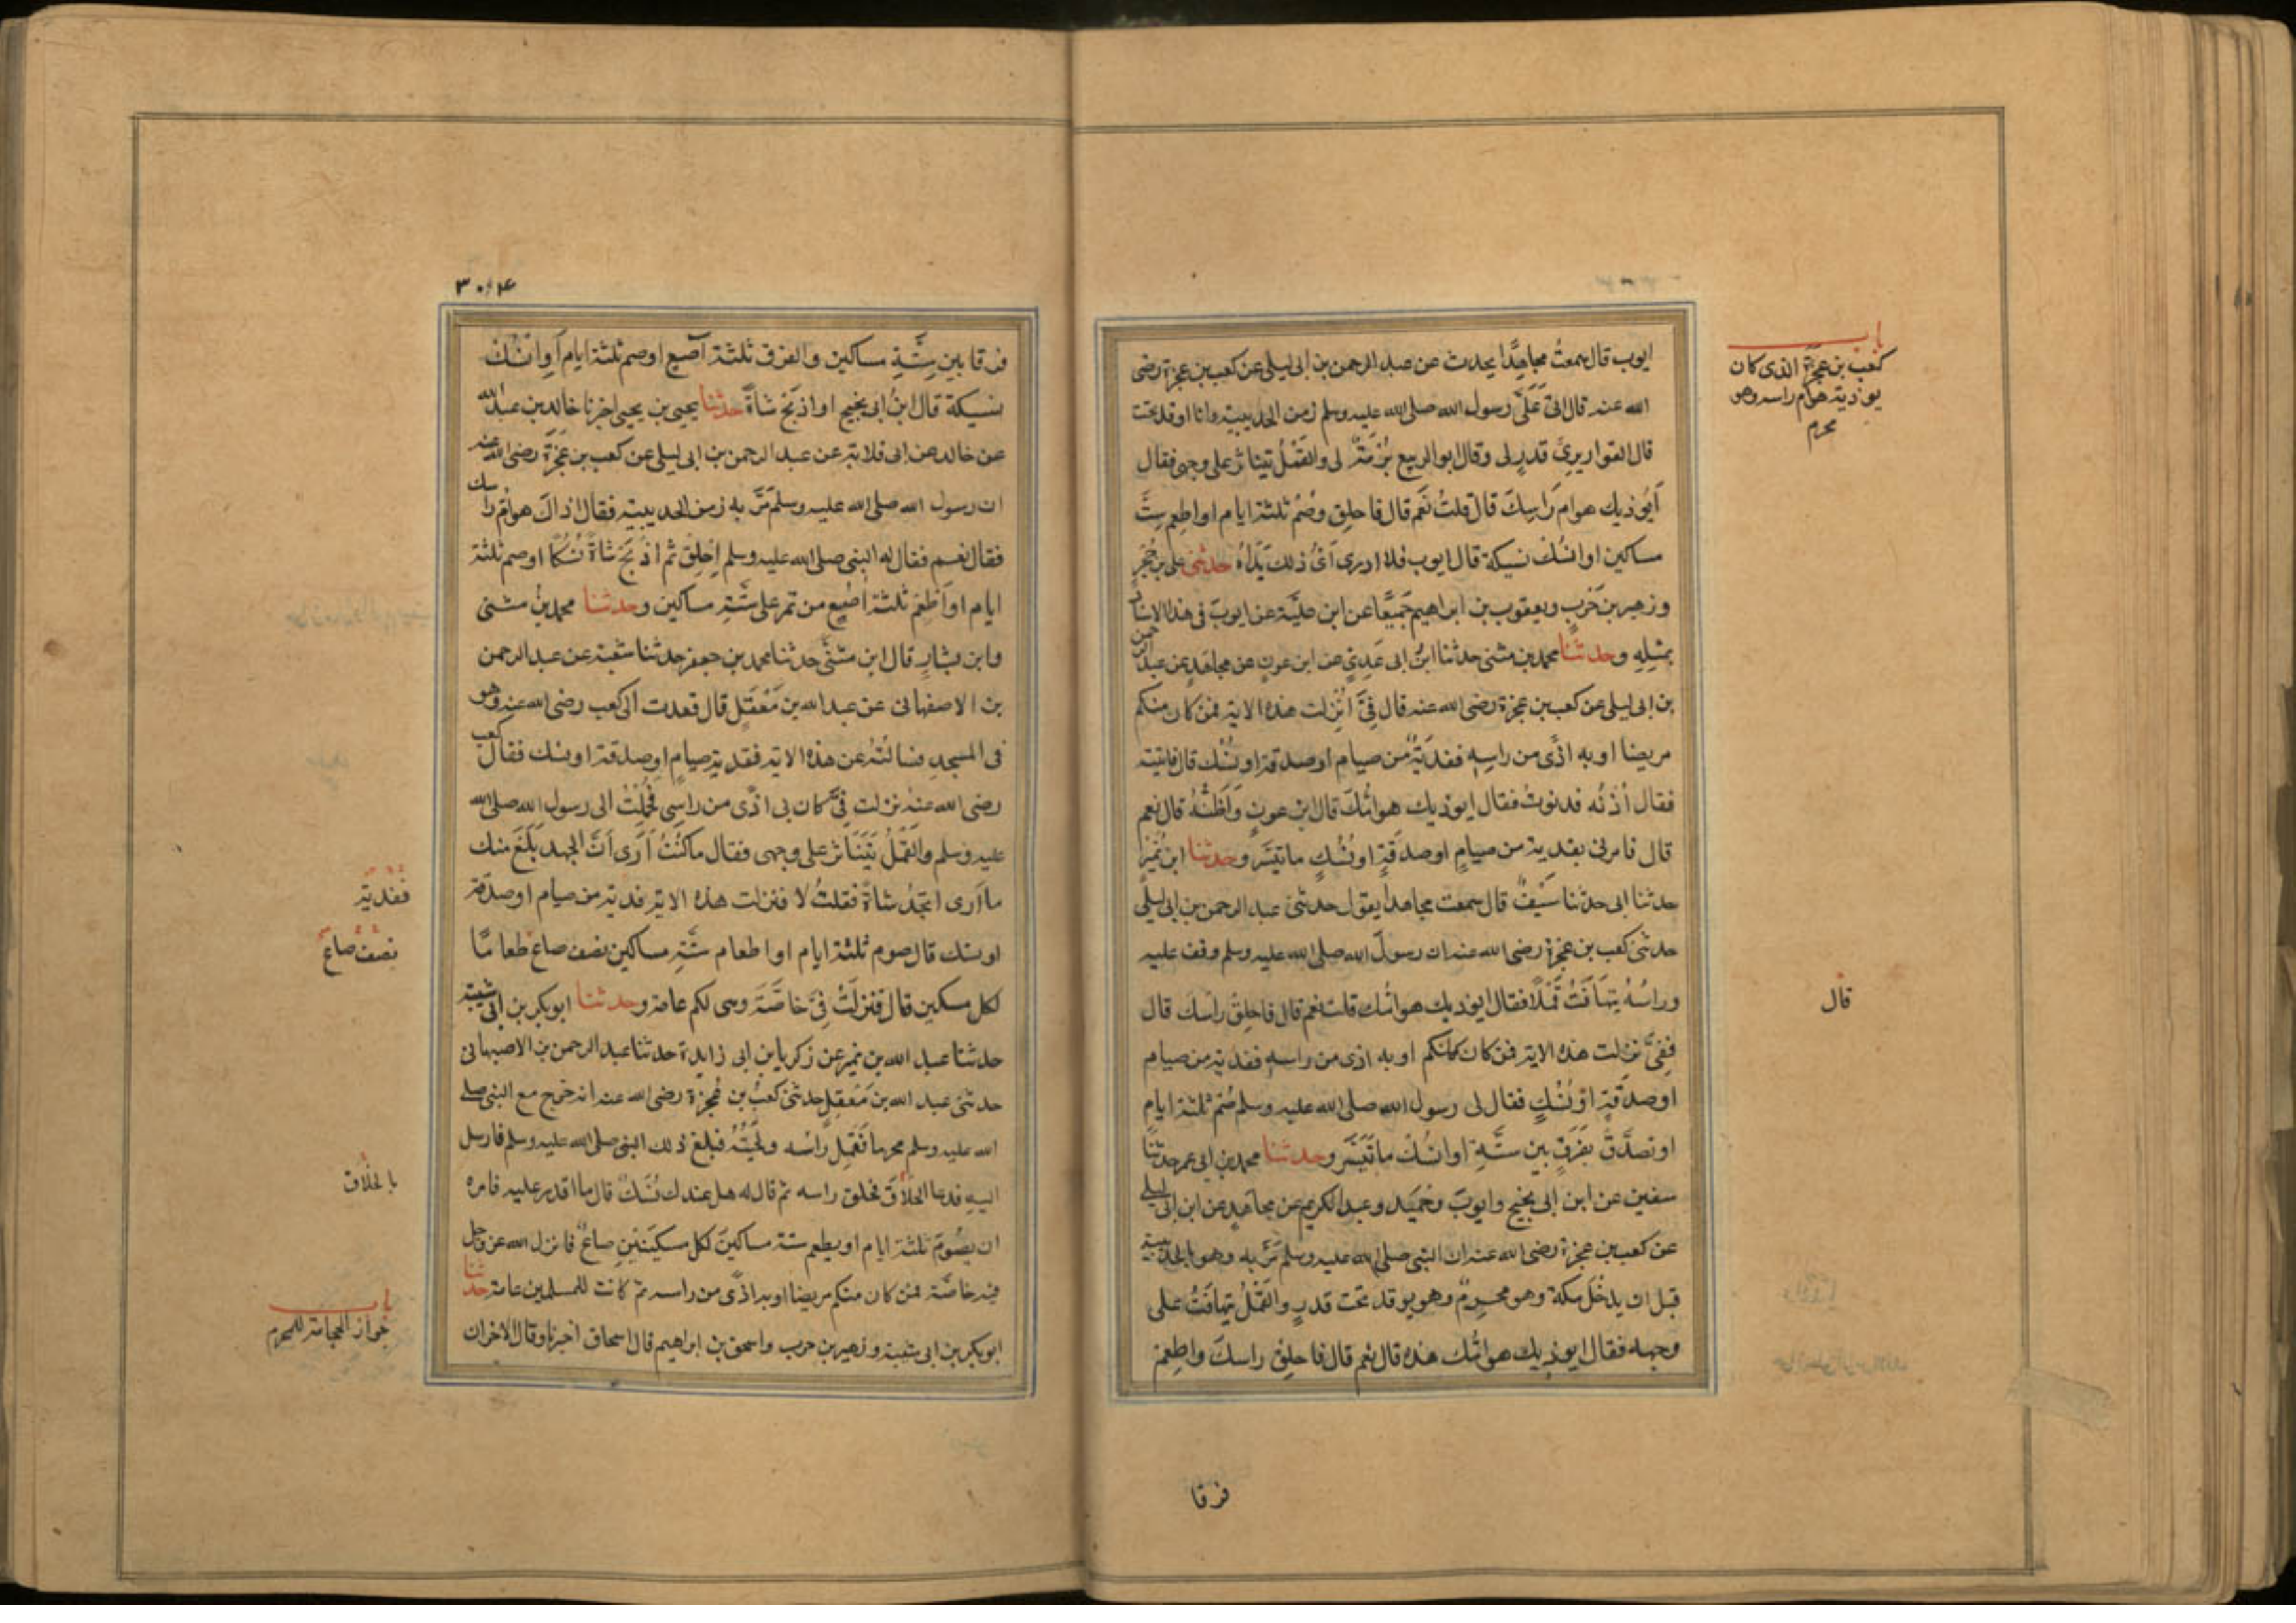 باب
كعب بن عجرة الذى كان
يوذيه هوام راسه وهو
محرم
ايوب قال سمعتُ مجاهدًا يحدث عن عبد الرحمن بن ابى ليلى عن كعب بن عجرة رضى
الله عنه قال اتى عَلَىَّ رسول الله صلى الله عليه وسلم زمن الحديبية وانا اوقد تحت
قال القواريرىُّ قدرٍ لى وقال ابو الربيع بُرْمَةٍ لى والقَمْلُ يتناثر على وجهى فقال
اَيُوذيك هوام رَاسِكَ قال قلتُ نَعَم قال فاحلِق وصُمْ ثلثة ايام او اطعِم سِتَّة
مساكين او انسُك نسيكة قال ايوب فلا ادرى اَىُّ ذلك بَدَأ حدثنى على بن حُجْرٍ
وزهير بن حَربٍ ويعقوب بن ابراهيم جَمِيْعًا عن ابن عليَّة عن ايوبَ فى هذا الاسناد
بمثِلِهِ وحدثنا محمد بن مثنى حدثنا ابنُ ابى عَدِىٍّ عن ابن عونٍ عن مجاهدٍ عن عبد الرحمن
بن ابى ليلى عن كعب بن عجرة رضى الله عنه قال فِىَّ اُنْزِلت هذه الاية فمن كان منكم
مريضا او به اذًى من راسِهٖ ففديَةٌ من صيام او صدقة او نُسُك قال فاتيته
فقال اُدْنُه فدنوتُ فقال ايوذيك هوامُّكَ قال ابن عونٍ وَاَظُنُّهُ قال نعم
قال فامرنى بفدية من صيامٍ او صدقَةٍ او نُسُكٍ ما تيَسَّر وحدثنا ابن نُمَيْرٍ
حدثنا ابى حدثنا سَيْفٌ قال سمعت مجاهدا يقول حدثنى عبد الرحمن بن ابى ليلى
حدثنى كعب بن عجرة رضى الله عنه ان رسولَ الله صلى الله عليه وسلم وقف عليه
وراسُهُ يتهَافَتُ قَمْلًا فقال ايوذيك هوامُّك قلت نعم قال فاحلِقْ راسَكَ قال
قال
ففِىَّ نزلت هذه الاية فمن كان منكم او به اذى من راسهٖ ففدية من صيام
او صدقَةٍ او نُسُكٍ فقال لى رسول الله صلى الله عليه وسلم صُمْ ثلثة ايامٍ
او تصدَّق بفَرَقٍ بين ستَّةٍ او انسُكْ ما تَيَسَّر وحدثنا محمد بن ابى عمر حدثنا
سفين عن ابن ابى نجيح وايوبَ وحُمَيد وعبد الكريم عن مجاهدٍ عن ابن ابى ليلى
عن كعب بن عجرة رضى الله عنه ان النبى صلى الله عليه وسلم مَرَّ به وهو بالحديبية
قبل ان يدخُلَ مكة وهو محرِمٌ وهو يوقد تحت قدرٍ والقَمْلُ يتهافتُ على
وجهه فقال ايوذيك هوامُّك هذه قال نعم قال فاحلِقْ راسكَ واطعِمْ
فرقا
٣٠٤
فرقا بين سِتَّةِ مساكين والفرق ثلثة آصُع او صم ثلثة ايام اَوِ انْسُكْ
نسيكة قال ابنُ ابى نجيح او اذبَح شاةً حدثنا يحيى بن يحيى اخبرنا خالد بن عبد الله
عن خالد عن ابى قلابة عن عبد الرحمن بن ابى ليلى عن كعب بن عُجْرَة رضى الله عنه
ان رسول الله صلى الله عليه وسلم مَرَّ به زمن الحديبية فقال اذاكَ هوامُّ راسك
فقال نعم فقال له النبى صلى الله عليه وسلم اِحْلِقْ ثم اذْبَح شاةً نُسُكًا او صم ثلثة
ايام او اَطْعِمْ ثلثة اصُعٍ من تمر على ستَّةِ مساكين وحدثنا محمد بنُ مثنى
وابن بشارٍ قال ابن مثنّٰى حدثنا محمد بن جعفر حدثنا شعبة عن عبد الرحمن
بن الاصفهانى عن عبد الله بن مَعْقَلٍ قال قعدت الى كعب رضى الله عنه وهو
فى المسجدِ فسالتُهُ عن هذه الاية ففدية صيامٍ او صدقة او نسك فقال كعب
رضى الله عنه نزلت فِىَّ كان بى اذًى من راسِى فحُمِلْتُ الى رسول الله صلى الله
عليه وسلم والقَمْلُ يَتَنَاثر على وجهى فقال ما كُنْتُ اُرَى اَنَّ الجهد بَلَغَ منك
ما اَرى اتجدُ شاةً فقلتُ لا فنزلت هذه الاية فدية من صيام او صدقة
ففدية
او نسك قال صوم ثلثة ايام او اطعام ستَّةِ مساكين نصف صاع طعامًا
نصف صاع
لكل مسكين قال فنزلَتْ فِىَّ خاصَّة وهى لكم عامة وحدثنا ابو بكر بن ابى شيبة
حدثنا عبد الله بن نمير عن زكريا بن ابى زايدة حدثنا عبد الرحمن بن الاصبهانى
حدثنى عبد الله بن مَعْقِلٍ حدثنى كعبُ بن عُجرة رضى الله عنه انه خرج مع النبى صلى
الله عليه وسلم محرما فَقَمِلَ راسُه ولحيَتُهُ فبلغ ذلك النبىَّ صلى الله عليه وسلم فارسل
اليهِ فدعا الحلَّاقَ فحلق راسه ثم قال له هل عندك نُسُكٌ قال ما اقدر عليه فامره
بالحلاق
ان يصُومَ ثلثة ايام او يطعم ستة مساكينَ لكل مسكينَيْنِ صاعٌ فانزل الله عز وجل
فيه خاصَّة فمن كان منكم مريضا او به اذًى من راسه ثم كانت للمسلمين عامة حدثنا
باب
جواز الحجامة للمحرم
ابو بكر بن ابى شيبة وزهير بن حرب واسحق بن ابراهيم قال اسحاق اخبرنا وقال الاخران